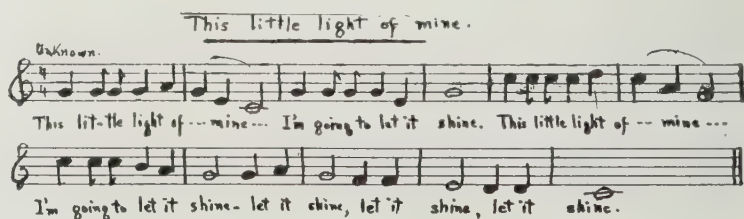 This little light of mine.
Unknown.
4
4
This lit-tle light of --- mine --- I'm going to let it shine. This little light of -- mine ---
I'm going to let it shine- let it shine, let it shine, let it shine.